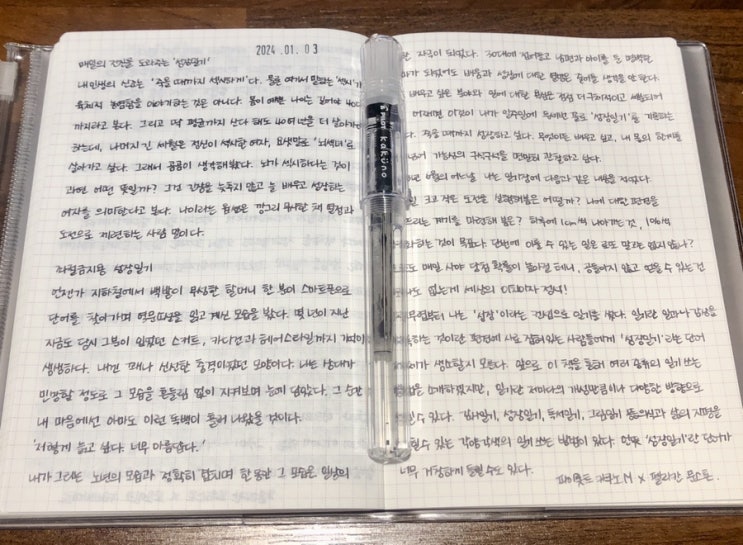 2024.01.03
매일의 건강을 도와주는 '성장일기'
내 인생의 신조는 '죽을 때까지 섹시하게'다. 물론 여기서 말하는 '섹시'가
육체적 농염함을 이야기하는 것은 아니다. 몸이 예쁜 나이는 길어야 40대
까지라고 본다. 그리고 딱 평균까지 산다 해도 40여년을 더 살아가야
하는데, 나머지 긴 세월은 정신이 섹시한 여자, 요샛말로 '뇌섹녀'로
살아가고 싶다. 그래서 곰곰이 생각해봤다. 뇌가 섹시하다는 것이
과연 어떤 뜻일까? 그건 긴장을 늦추지 않고 늘 배우고 성장하는
여자를 의미한다고 본다. 나이라는 육체는 깡그리 무시한 채 열정과
도전으로 게련하는 사람 말이다.
좌절금지용 성장일기
언젠가 지하철에서 백발이 무성한 할머니 한 분이 스마트폰으로
단어를 찾아가며 영문 을 읽고 계신 모습을 봤다. 몇 년이 지난
지금도 당시 그분이 입었던 스커트, 카디건과 헤어스타일까지 기억이
생생하다. 내겐 꽤나 신선한 충격이었던 모양이다. 나는 상대가
민망할 정도로 그 모습을 흔들림 없이 지켜보며 눈에 담았다. 그 순간
내 마음에선 아마도 이런 독백이 흘러 나왔을 것이다.
'저렇게 늙고 싶다. 너무 아름답다.'
내가 그리는 노년의 모습과 정확히 겹치며 한동안 그 모습은 일상의
kakuno
자극이 되었다. 30대에 접어들고 남편과 아이를 둔
가 되었어도 배움과 성장에 대한 열망은 줄어들 생각을 안 한다.
배우고 싶은 분야와 일에 대한 욕심은 점점 더 구체적이고 세분화되어
어쩌면 이것이 내가 일주일에 두세번 꼴로 '성장일기'를 기록하는
다. 죽을 때까지 성장하고 싶다. 무엇이든 배우고 싶고, 내 몸의 한계를
넘어 가능성의 구석구석을 면밀히 관찰하고 싶다.
6월의 어느날 나는 일기장에 다음과 같은 내용을 적었다.
크고 작은 도전을 실행해보는 것은 어떨까? 나에 대한 편견을
뜨리는 계기를 마련해 볼ㅡ? 하루에 1cm씩 나아가는 것, 1%씩
하는 것이 목표다. 단번에 이룰 수 있는 일은 로또 말고는 없지 않나?
또도 매일 사야 당첨 확률이 높아질 테니, 공들이지 않고 얻을 수 있는 건
나도 없는게 세상의 이치이자 정석!
무렵부터 나는 '성장'이라는 관점으로 일기를 썼다. 일기란 일과나 감상을
하는 것이란 관점에 사로잡혀 있는 사람들에게 '성장일기'라는 단어
이가 생소할지 모른다. 앞으로 이 책을 통해 여러 종류의 일기 쓰는
을 소개하겠지만, 일기란 저마다의 개성만큼이나 다양한 방향으로
쓸 수 있다. 감사일기, 성장일기, 독서일기, 그림일기 등 의식과 삶의 지평을
힐 수 있는 각양각색의 일기 쓰는 방법이 있다. 언뜻 '성장일기'란 단어가
너무 거창하게 들릴 수도 있다.
파이롯트 카쿠노 M × 펠리칸 문스톤.